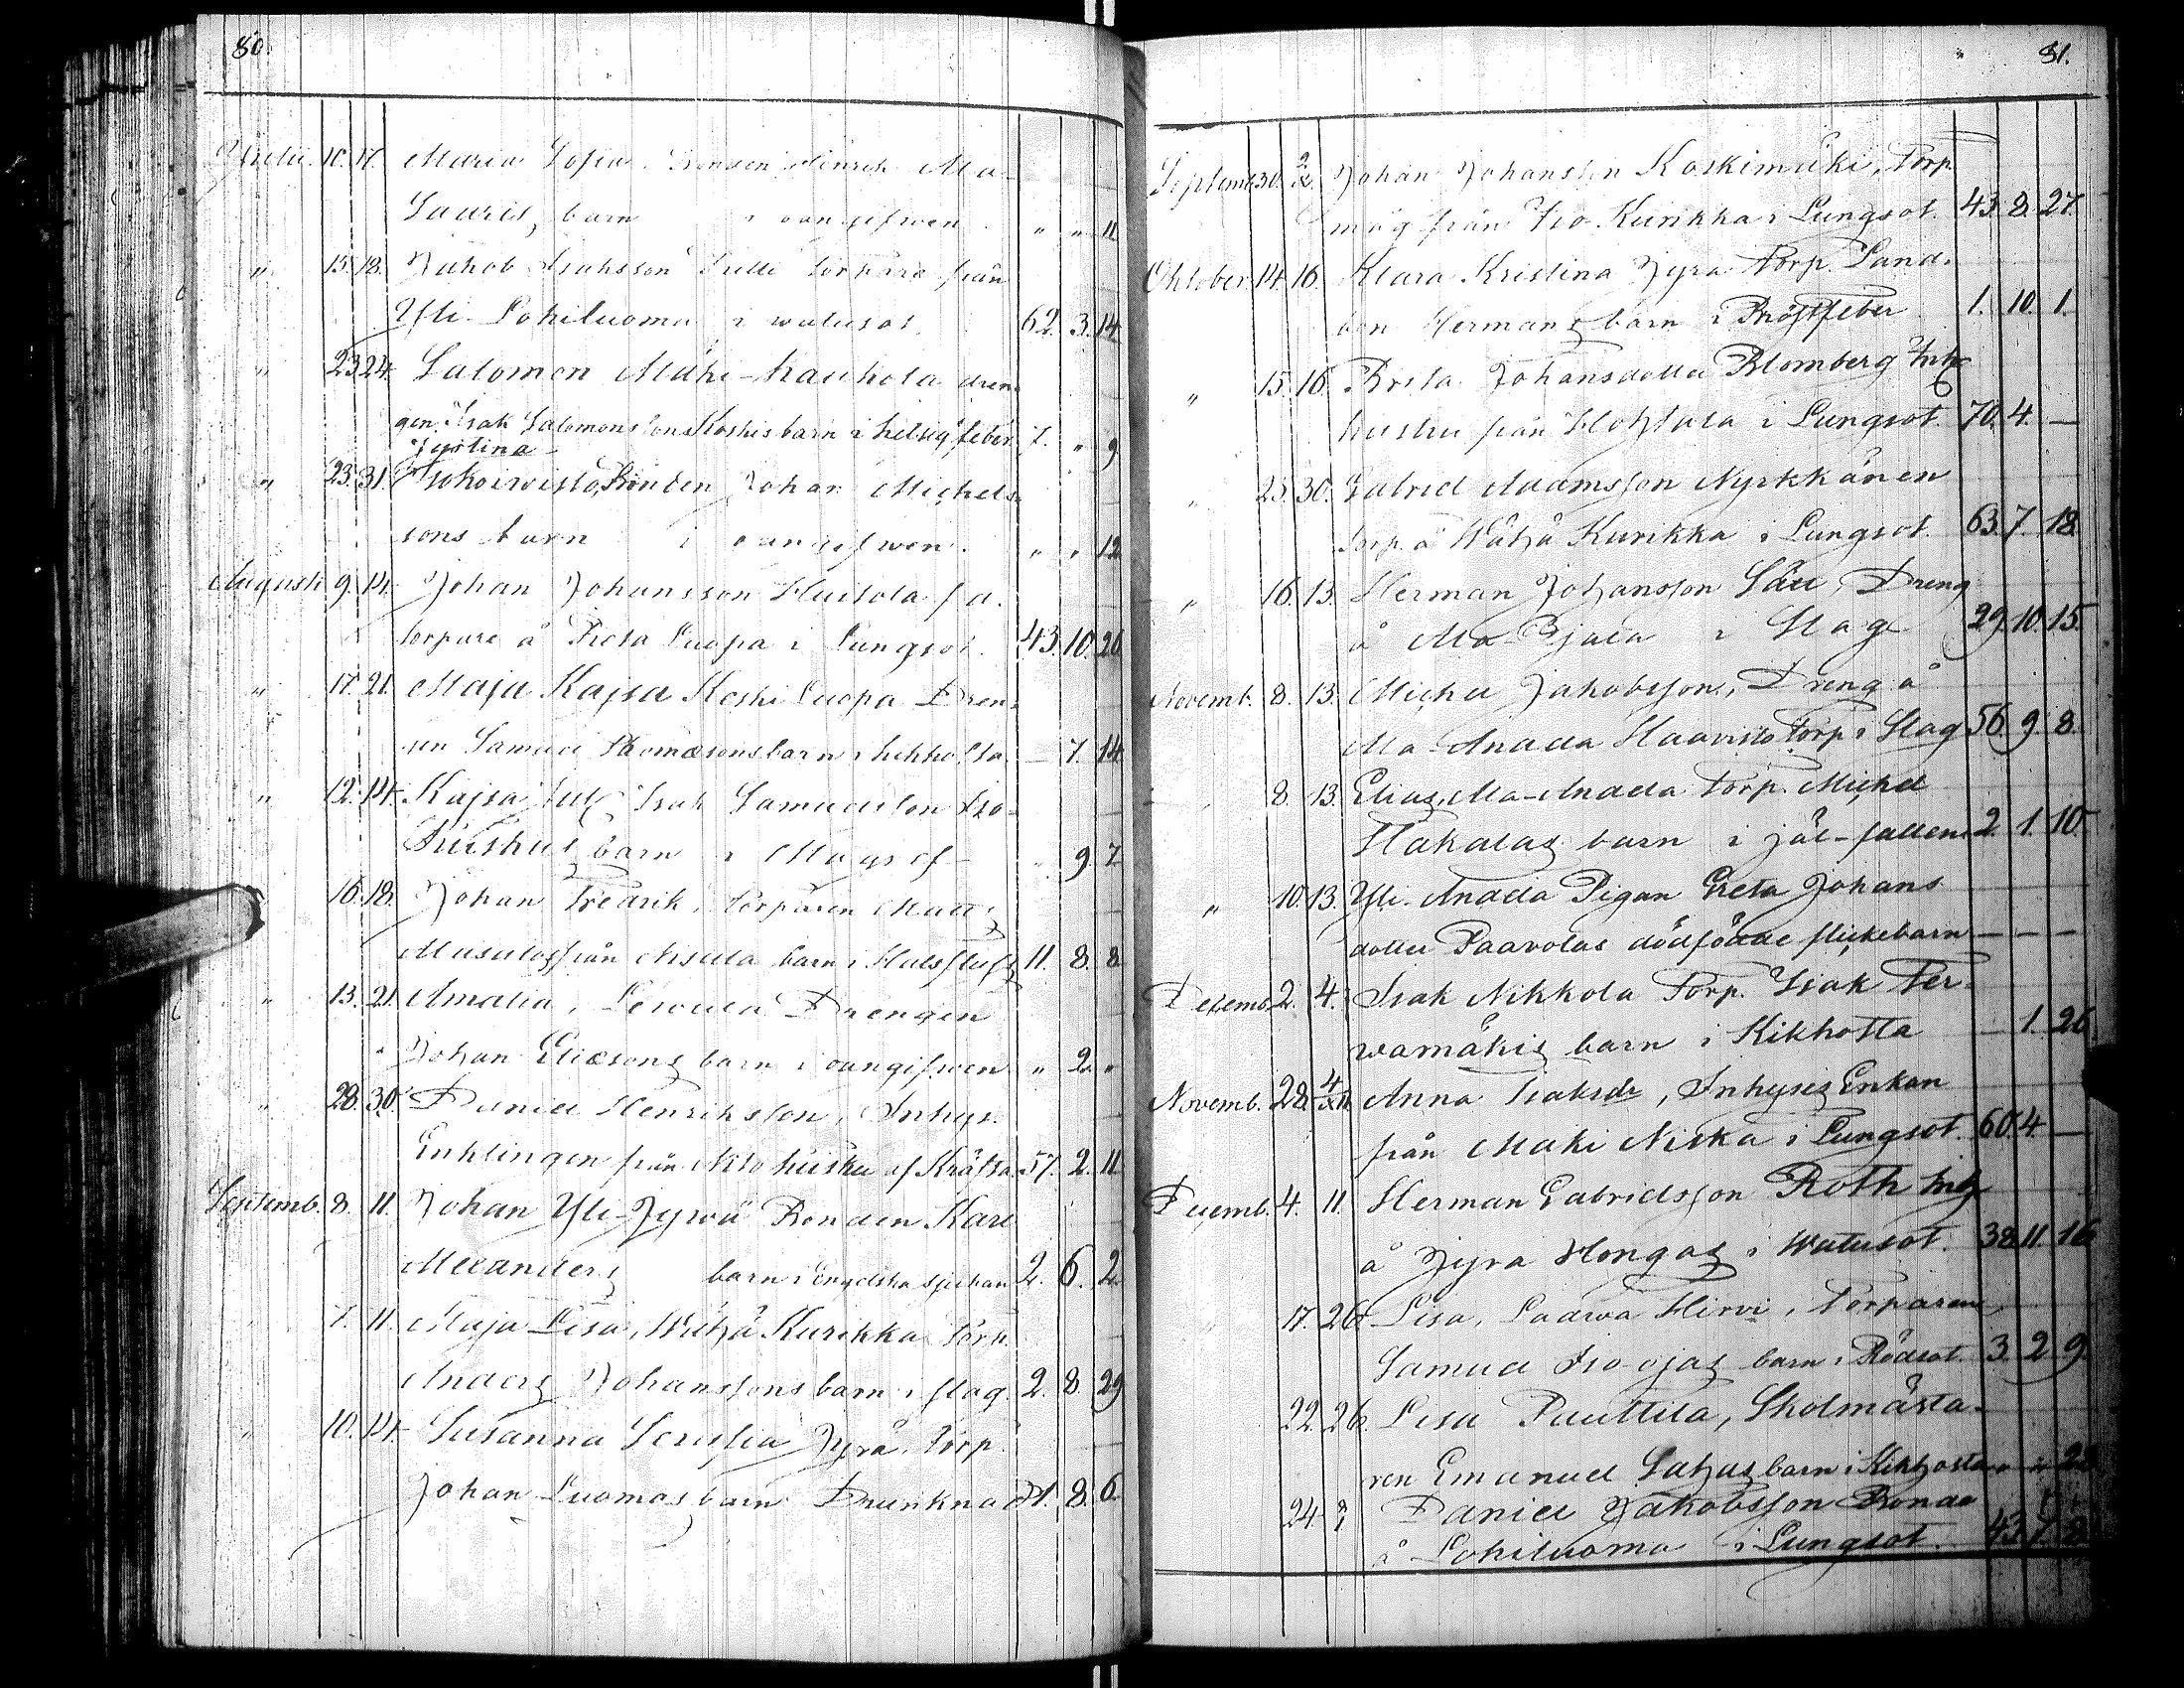 80.
Julii. 10. 17. Maria Sofia, Bonden Henrik Ma-
Lauris barn i oangifwen. " " 11
" 15. 18. Jakob Isaksson torpare från
Yli-Lohiluoma i watusot. 62. 3. 14
" 23. 24. Salomon Mäki-Kaukola dren-
gen Isak Salomonssons Koskis barn i hetsig feber 7. " 9
Justina
" 23. 31. Isokoivisto, Bonden Johan Michels-
sons barn i oangifwen. " " 12
Augusti 9. 14. Johan Johansson f.d.
torpare å Luopa i Lungsot. 43. 10. 26
" 17. 21. Maja Kajsa Koski Luopa Dren-
gen Samuel Thomæsons barn i kikhosta — 7. 14
" 12. 14. Kajsa, Inh. Isak Samuelsson Iso-
barn i Magref " 9. 7
16. 18. Johan Fredrik, torparen Matts
från barn i Halsfluss 11. 8. 8
" 13. 21. Amalia, Drengen
Johan Eliæsons barn i oangifwen " 2. "
" 28. 30. Daniel Henriksson, Inhys.
Enklingen från af Kräfta 57. 2. 11
Septemb. 8. 11. Johan Yli-Jyrä Bonden Karl
Alexanders barn i Engelska sjukan 2. 6. 2
7. 11. Maja Lisa, Wähä Kurikka Torp.
Anders Johanssons barn i slag. 2. 8. 29
" 10. 14. Susanna Serafia Jyrä Torp.
Johan Luomas barn Drunknad 1. 8. 6.
81.
Septemb. 30. Johan Johansson Koskimäki, Torp.
måg från Iso-Kurikka i Lungsot. 43. 8. 27.
Oktober. 14. 16. Klara Kristina Jyrä Torp. Land-
bon Hermans barn i Bröstfeber 1. 10. 1.
" 15. 16. Brita Johansdotter Blomberg Inh.
hustru från i Lungsot. 70. 4. —
" 25. 30. Gabriel Adamsson Nyrkkänen
torp. å Wähä Kurikka i Lungsot. 63. 7. 18.
" 16. 13. Herman Johansson Dreng
å Ala i Slag 29. 10. 15.
Novemb. 8. 13. Michel Jakobsson, Dreng å
Ala-Andela Haavisto Torp i Slag 56. 9. 8.
" 8. 13. Elias, Ala-Andela Torp. Michel
Hakalas barn i jäl-fallen 2. 1. 10.
" 10. 13. Yli-Andela Pigan Greta Johans
dotter Paavolas dödfödde flickebarn — — —
Decemb. 2. 4. Isak Nikkola Torp. Isak Ter-
wamäkis barn i Kikhosta — 1. 26
Novemb. 28. Anna Isaksdr, Inhyses Enkan
från Mäki Niska i Lungsot. 60. 4. —
Decemb. 4. 11. Herman Gabrielsson Roth Inh.
å Jyrä Hongas i Watusot. 38. 11. 16
17. 26. Lisa, Laawa Hirvi, Torparen
Samuel Iso-ojas barn i Rödsot. 3. 2. 9.
22. 26. Lisa Panttila, Skolmästa-
ren Emanuel barn i Kikhosta " " 23
24. ? Daniel Jakobsson Bonde
å Lohiluoma i Lungsot. 43. 7. 8